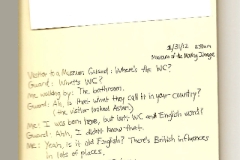 12/31/12 6:30pm
Museum of the Moving Image
Visitor to a Museum Guard: Where's the WC?
Guard: What's WC?
Me walking by: The bathroom.
Guard: Ah, is that what they call it in your country?
(the visitor looked Asian)
Me: I was born here, but isn't WC and English word?
Guard: Ahh, I didn't know that.
Me: Yeah, is it old English? There's British influences
in lots of places.